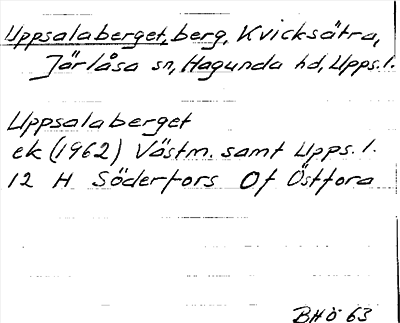 Uppsalaberget, berg, Kvicksätra,
Järlåsa sn, Hagunda hd, Upps. l.
Uppsalaberget
ek (1962) Västm. samt Upps. l.
12 H Söderfors Of Östfora
BHÖ 63